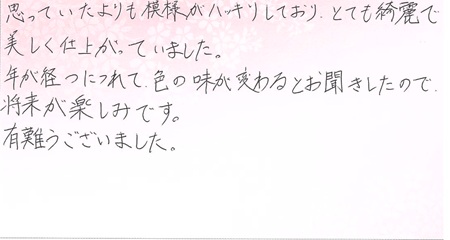 思っていたよりも模様がハッキリしており、とても綺麗で
美しく仕上がっていました。
年が経つにつれて、色の味が変わるとお聞きしたので、
将来が楽しみです。
有難うございました。